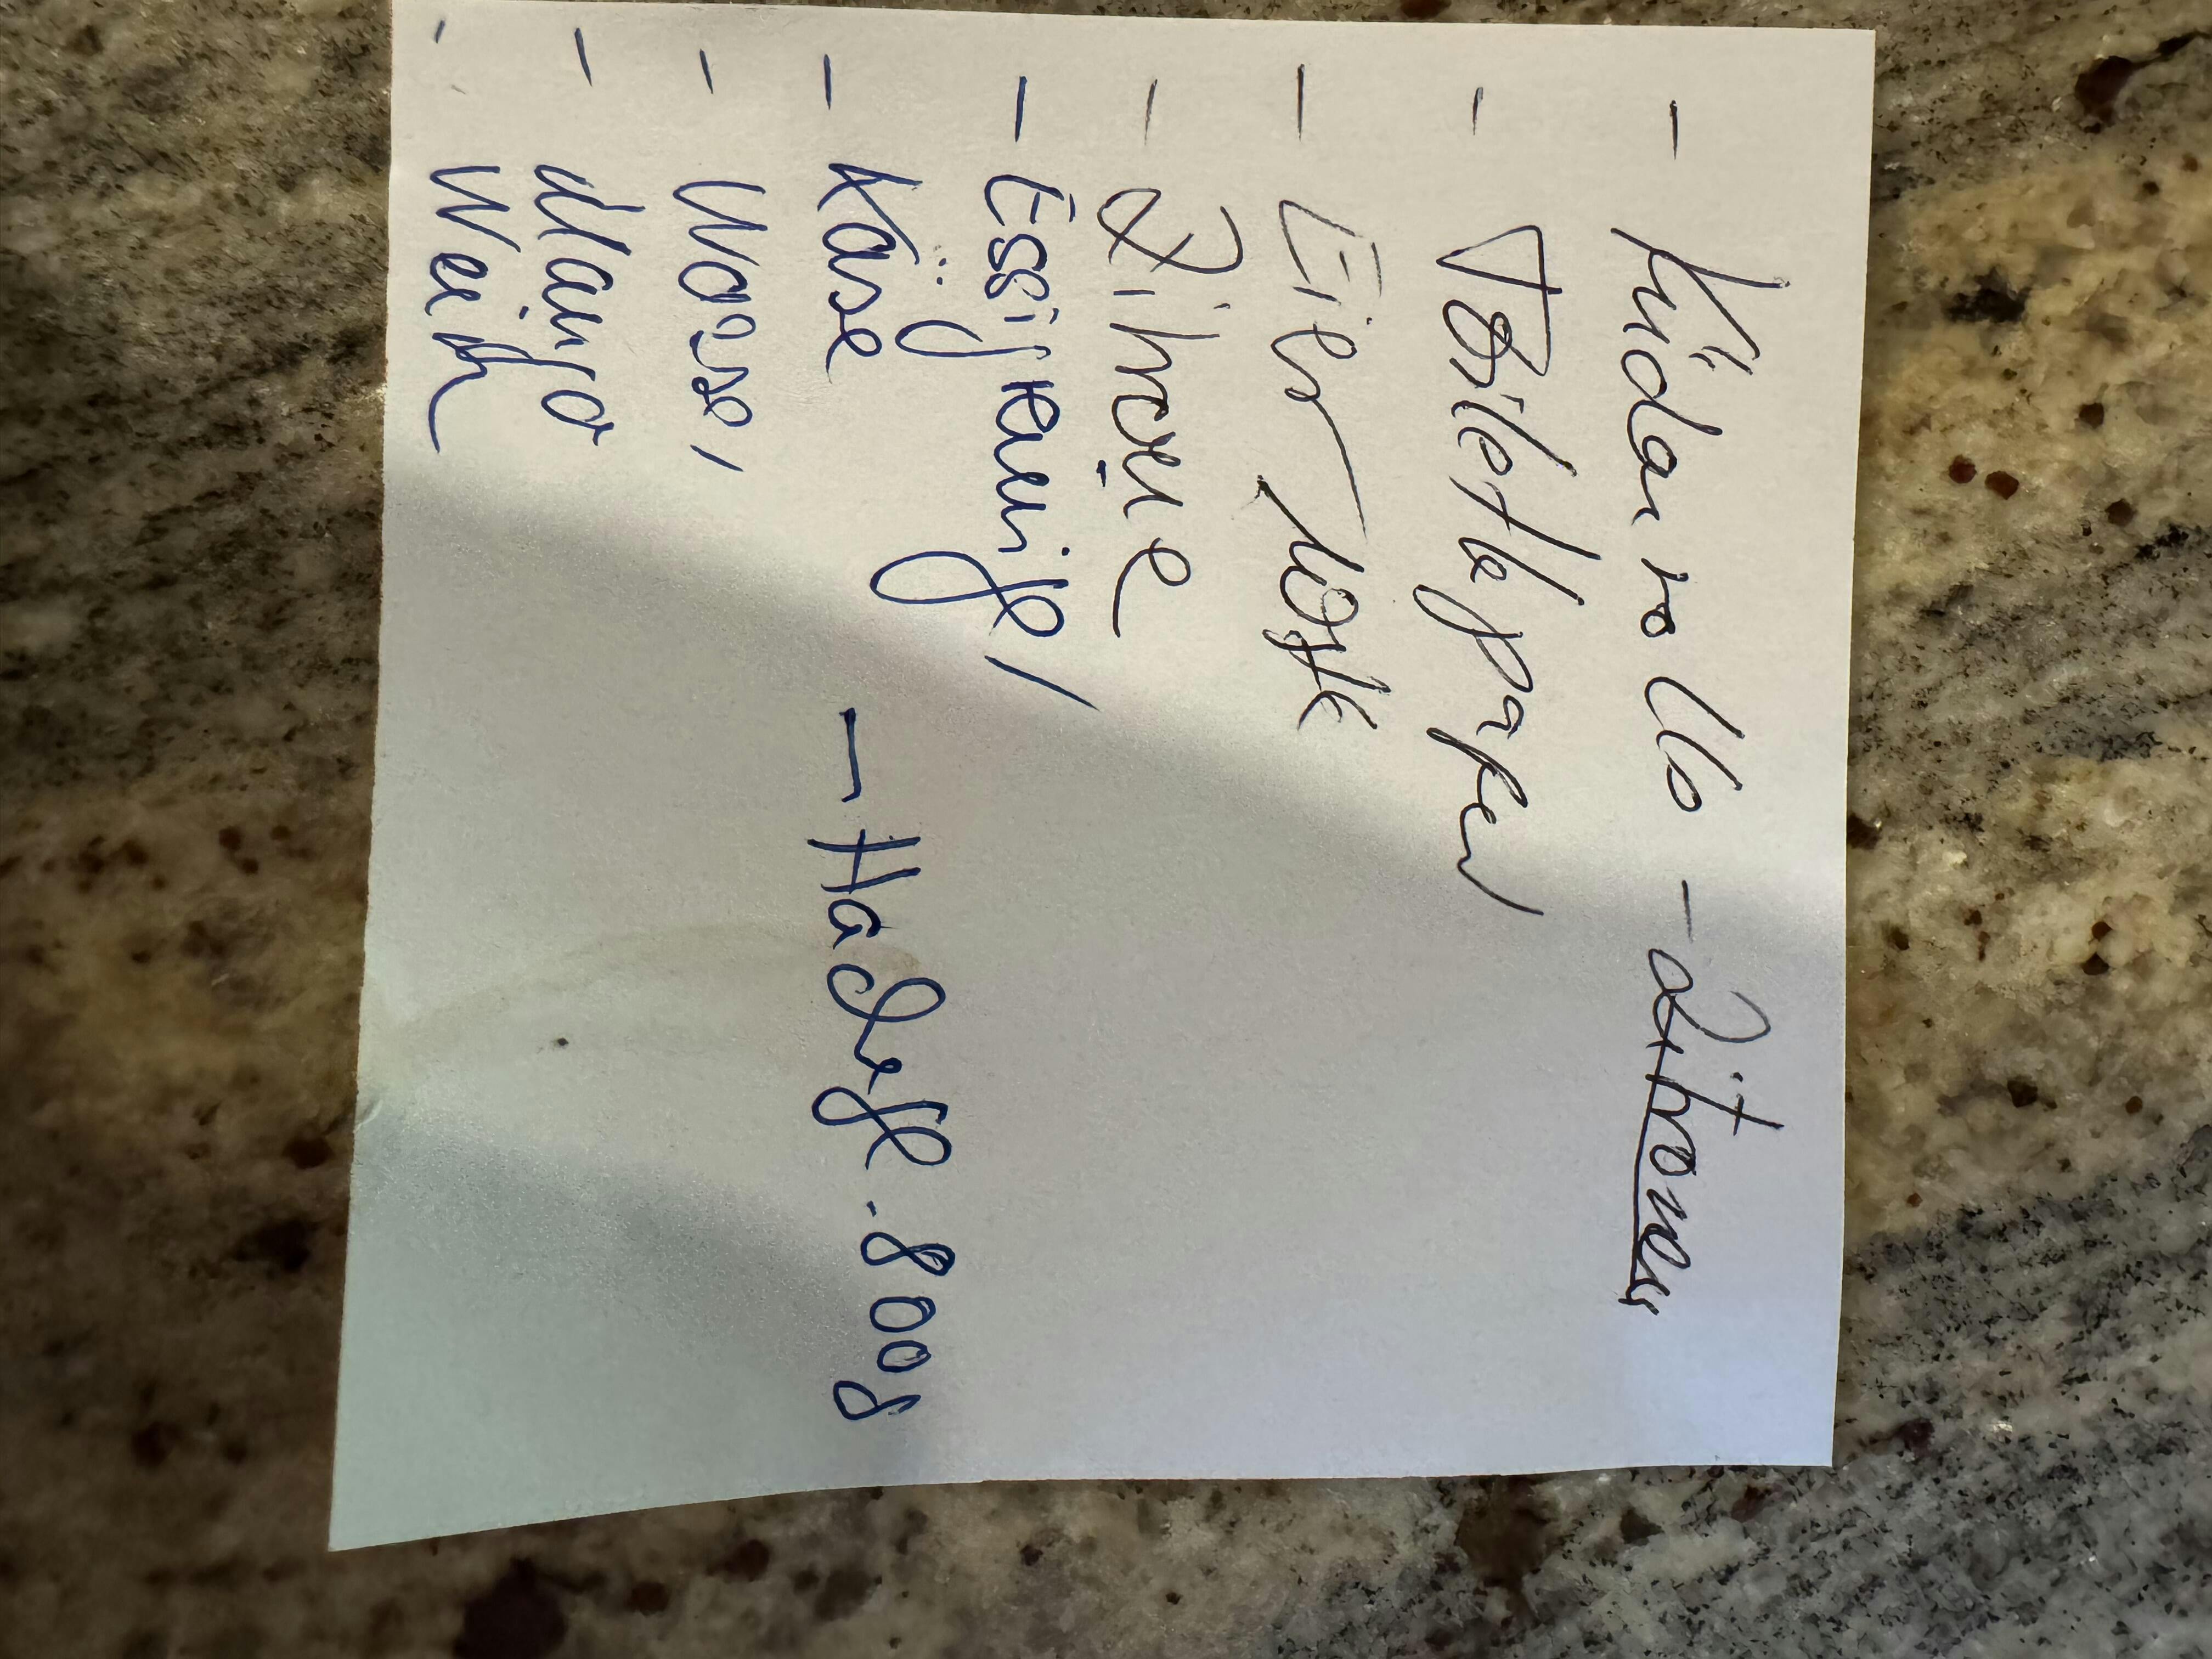 - Küchenrolle - Zitronen
- Toilettepapier
- Eier
- Zitrone
- Essigreiniger
- Käse - Hackfl. 800g
- Wasser
- Mango
- Weich